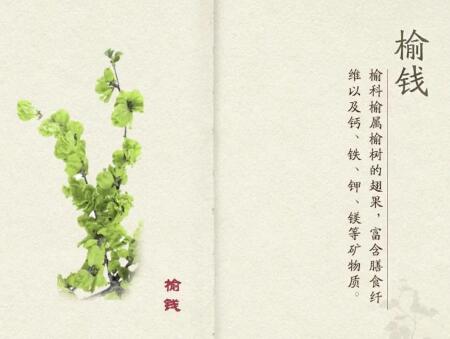 榆钱
榆科榆属榆树的翅果，富含膳食纤
维以及钙、铁、钾、镁等矿物质。
榆钱